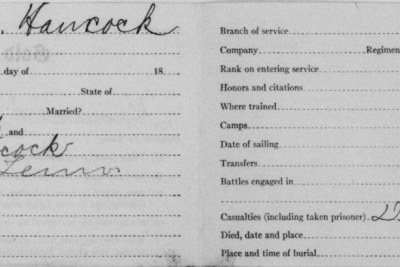 . Hancock
day of 18
State of
Married?
and
cock
Tenn.
Branch of service
Company Regimen
Rank on entering service
Honors and citations
Where trained
Camps
Date of sailing
Transfers
Battles engaged in
Casualties (including taken prisoner)
Died, date and place
Place and time of burial